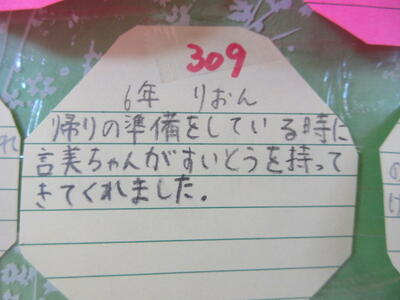 309
6年 りおん
帰りの準備をしている時に
言美ちゃんがすいとうを持って
きてくれました。
れ
の
け